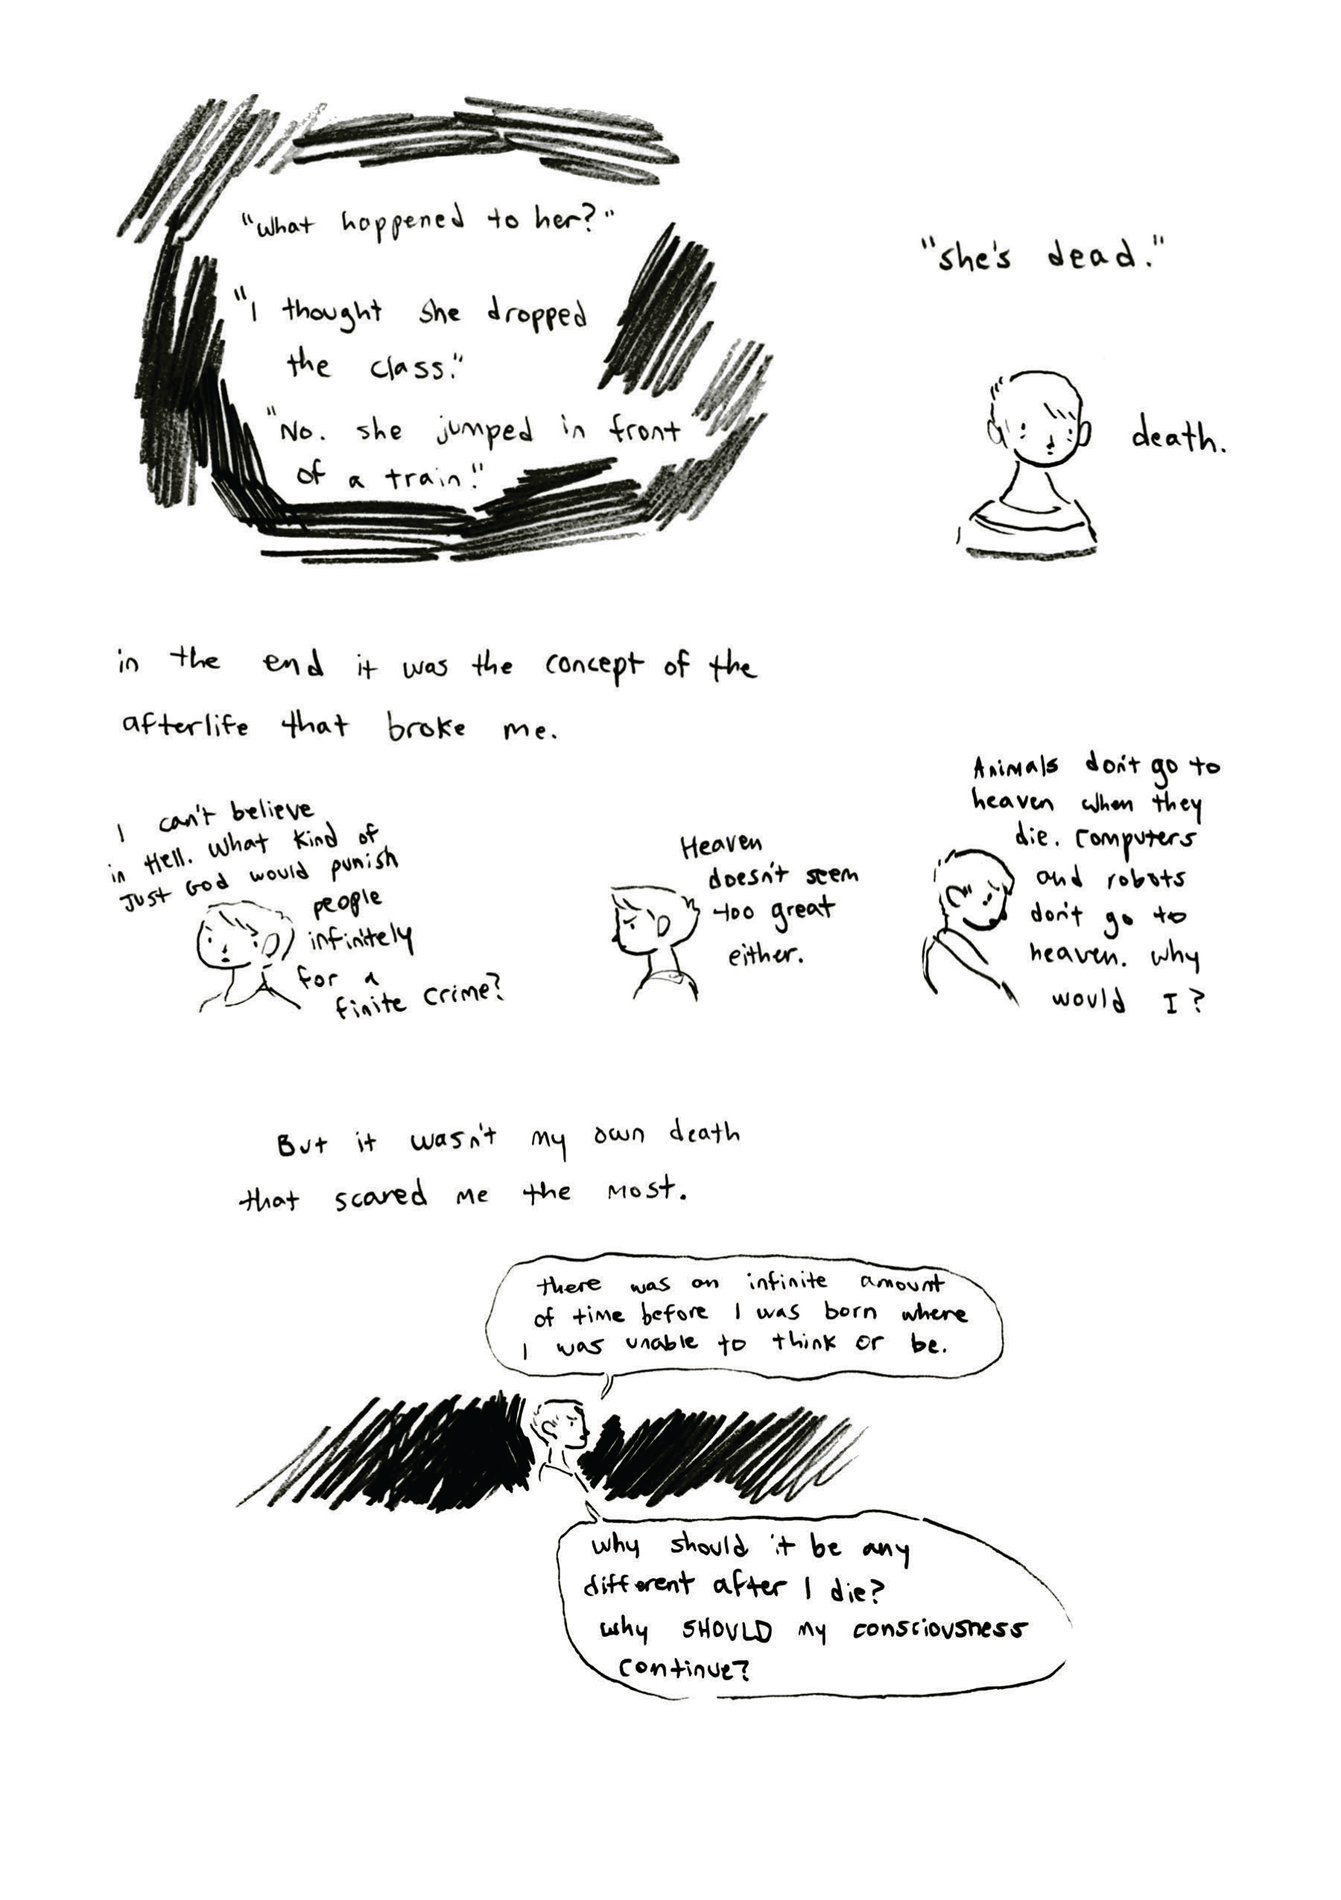 "What happened to her?"
"I thought she dropped
the class."
"No. she jumped in front
of a train."
"she's dead."
death.
in the end it was the concept of the
afterlife that broke me.
I can't believe
in Hell. What kind of
Just God would punish
people
infinitely
for a
finite crime?
Heaven
doesn't seem
too great
either.
Animals don't go to
heaven when they
die. Computers
and robots
don't go to
heaven. Why
would I?
But it wasn't my own death
that scared me the most.
there was an infinite amount
of time before I was born where
I was unable to think or be.
why should it be any
different after I die?
why SHOULD my consciousness
continue?